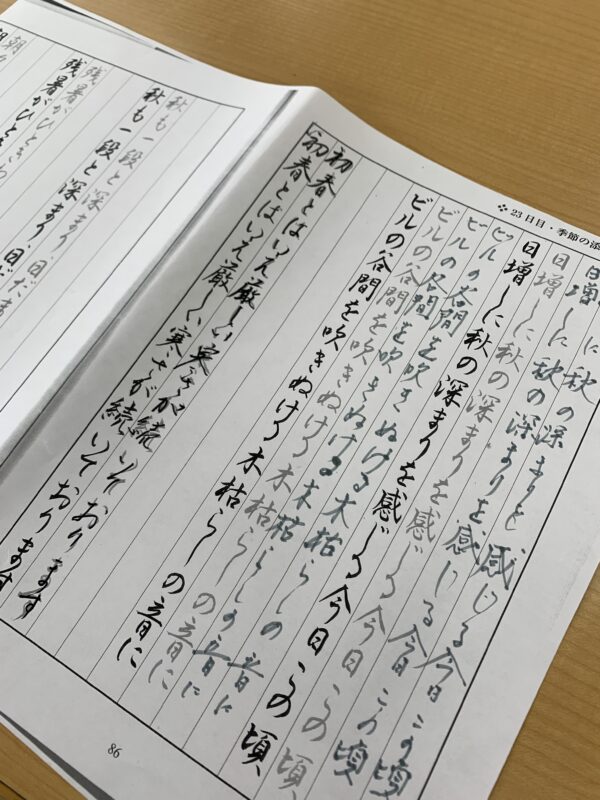 ❖ 23日目・季節の添
に秋の深まりを感じる今日この頃
日増しに秋の深まりを感じる今日この頃
日増しに秋の深まりを感じる今日この頃
日増しに秋の深まりを感じる今日この頃、
ビルの谷間を吹きぬける木枯らしの音に
ビルの谷間を吹きぬける木枯らしの音に
ビルの谷間を吹きぬける木枯らしの音に
ビルの谷間を吹きぬける木枯らしの音に
初春とはいえ厳しい寒さが続いております
初春とはいえ厳しい寒さが続いております
86
秋も一段と深まり、日だま
秋も一段と深まり、日だ
残暑がひときわ
残暑がひときわ
朝
朝